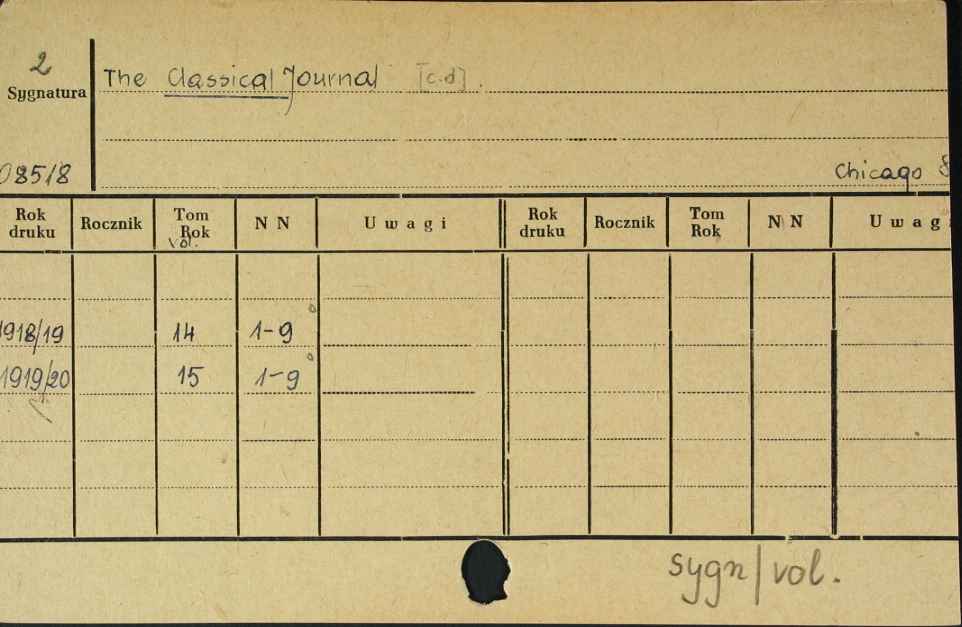 2
Sygnatura
The Classical Journal [c.d].
085/8
Chicago
Rok druku Rocznik Tom Rok vol. N N Uwagi Rok druku Rocznik Tom Rok N N Uwag
1918/19 14 1-9
1919/20 15 1-9
sygn/vol.